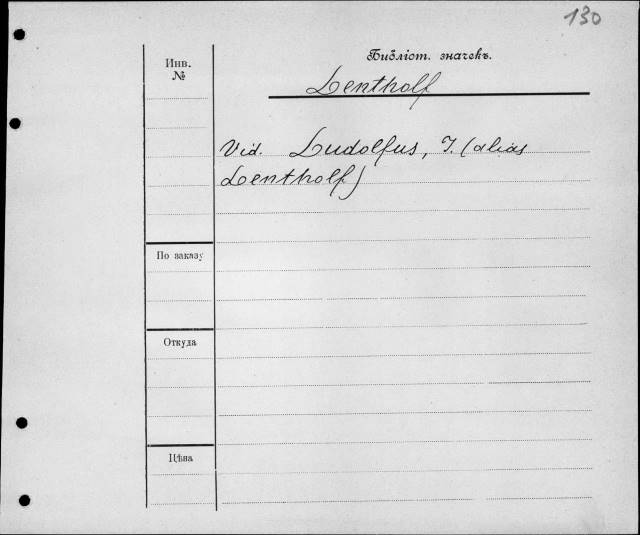 130
Библіот. значекъ.
Инв.
№
Lentholf
Vid. Ludolfus, J. (alias
Lentholf)
По заказу
Откуда
Цѣна